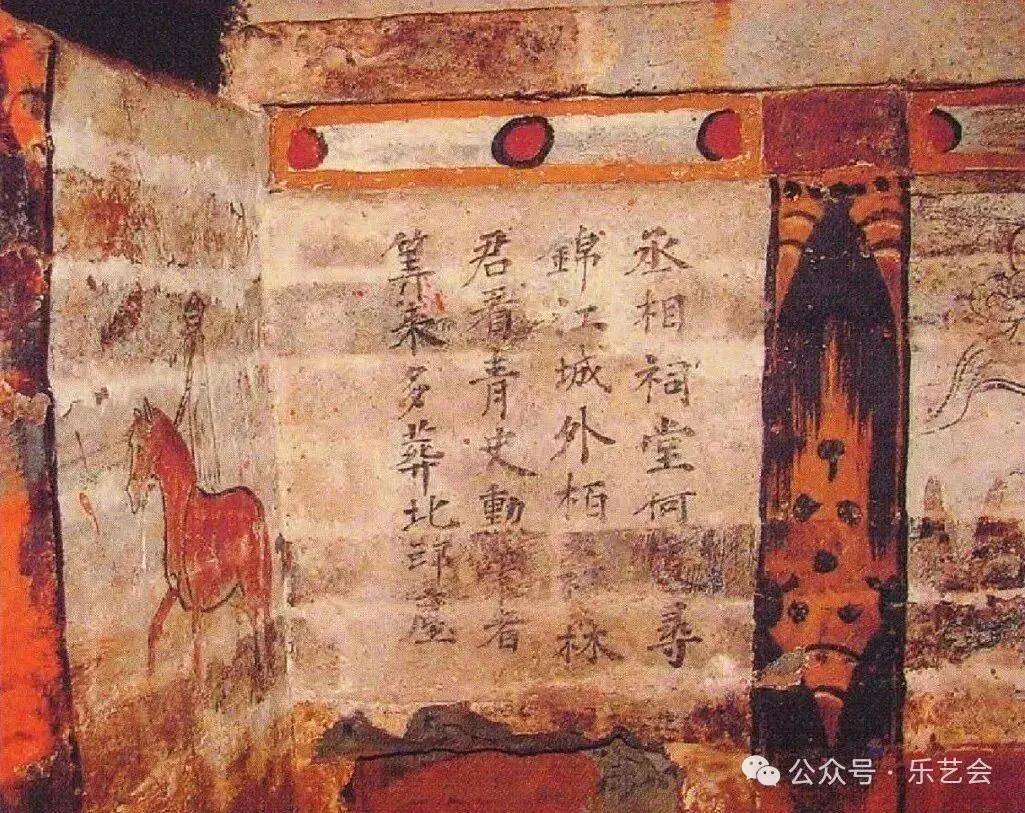 丞相祠堂何尋
錦江城外栢林
君看青史動者
筭来多葬北邙
公众号·乐艺会